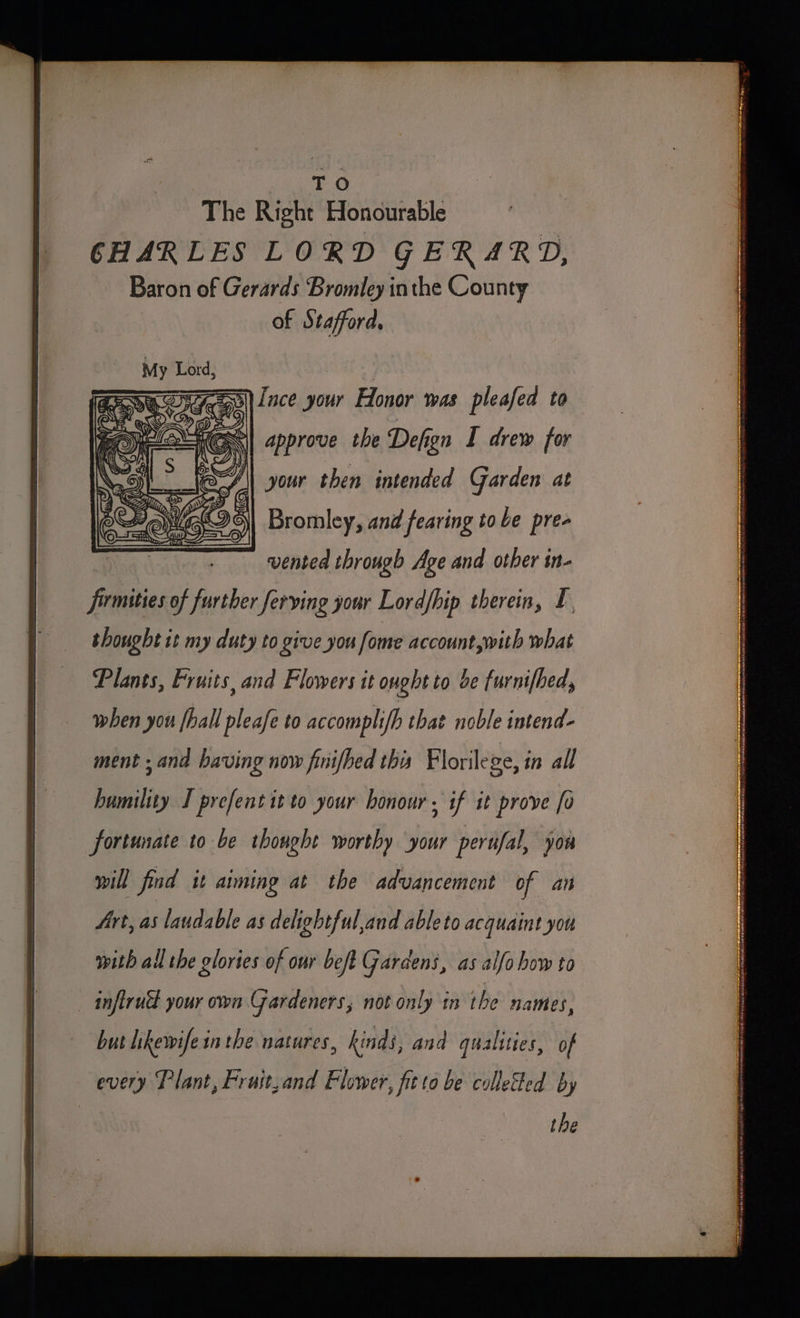 TO
The Right Honourable
CHARLES LORD GERARD,
Baron of Gerards Bromley in the County
of Stafford.
My Lord,
Since your Honor was pleaſed to
approve the Deſign I drew for
your then intended Garden at
Bromley, and fearing to be pre-
vented through Age and other in-
firmities of further ſerving your Lordſhip therein, I
thought it my duty to give you ſome account, with what
Plants, Fruits, and Flowers it ought to be furniſhed,
when you ſhall pleaſe to accompliſh that noble intend-
ment; and having now finiſhed this Florilege, in all
humility I preſent it to your honour; if it prove ſo
fortunate to be thought worthy your peruſal, you
will find it aiming at the advancement of an
Art, as laudable as delightful, and able to acquaint you
with all the glories of our beſt Gardens, as alſo how to
inſtruct your own Gardeners, not only in the names,
but likewiſe in the natures, kinds, and qualities, of
every Plant, Fruit, and Flower, fit to be collected by
the